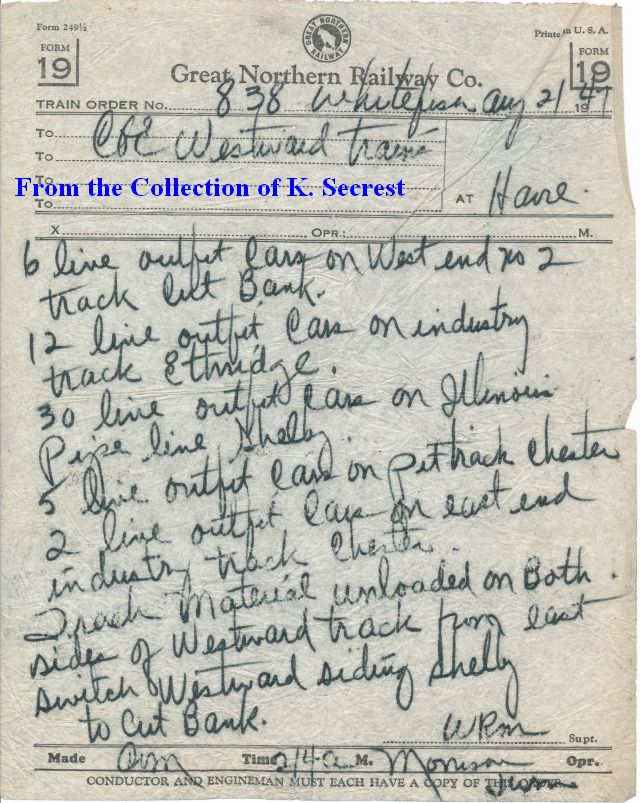 Form 249½
Printed in U. S. A.
FORM
19
GREAT NORTHERN RAILWAY
FORM
19
Great Northern Railway Co.
TRAIN ORDER No. 838 Whitefish Aug 21 1947
To C&E Westward trains
To
To
From the Collection of K. Secrest
To
AT Havre.
X OPR.: M.
6 line outfit Cars on West end no 2
track Cut Bank.
12 line outfit Cars on industry
track Ethridge.
30 line outfit Cars on Illinois
Pipe line Shelby.
5 line outfit Cars on pit track Chester
2 line outfit Cars on east end
industry track Chester.
Track Material unloaded on Both
sides of Westward track from east
switch Westward siding Shelby
to Cut Bank.
WRM Supt.
Made Com Time 214 a M. Morrison Opr.
CONDUCTOR AND ENGINEMAN MUST EACH HAVE A COPY OF THIS ORDER